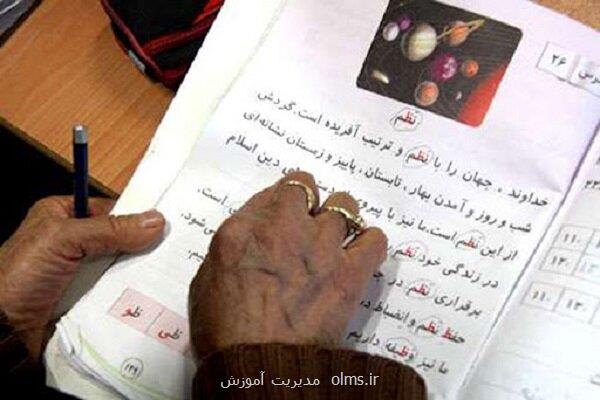 درس ۲۶
نظم
خداوند، جهان را با نظم و ترتیب آفریده است. گردش
شب و روز و آمدن بهار، تابستان، پاییز و زمستان نشانه‌ای
از این نظم است. ما نیز با پیروی دین اسلام
در زندگی خود نظم است.
برقراری نظم در می‌شود.
حفظ نظم و انضباط
ما نیز وظیفه داریم
ظی ظو
۱۳۹
۱۱۰ ۱۳۰
۱۱۰ ۱۳۰
olms.ir مدیریت آموزش